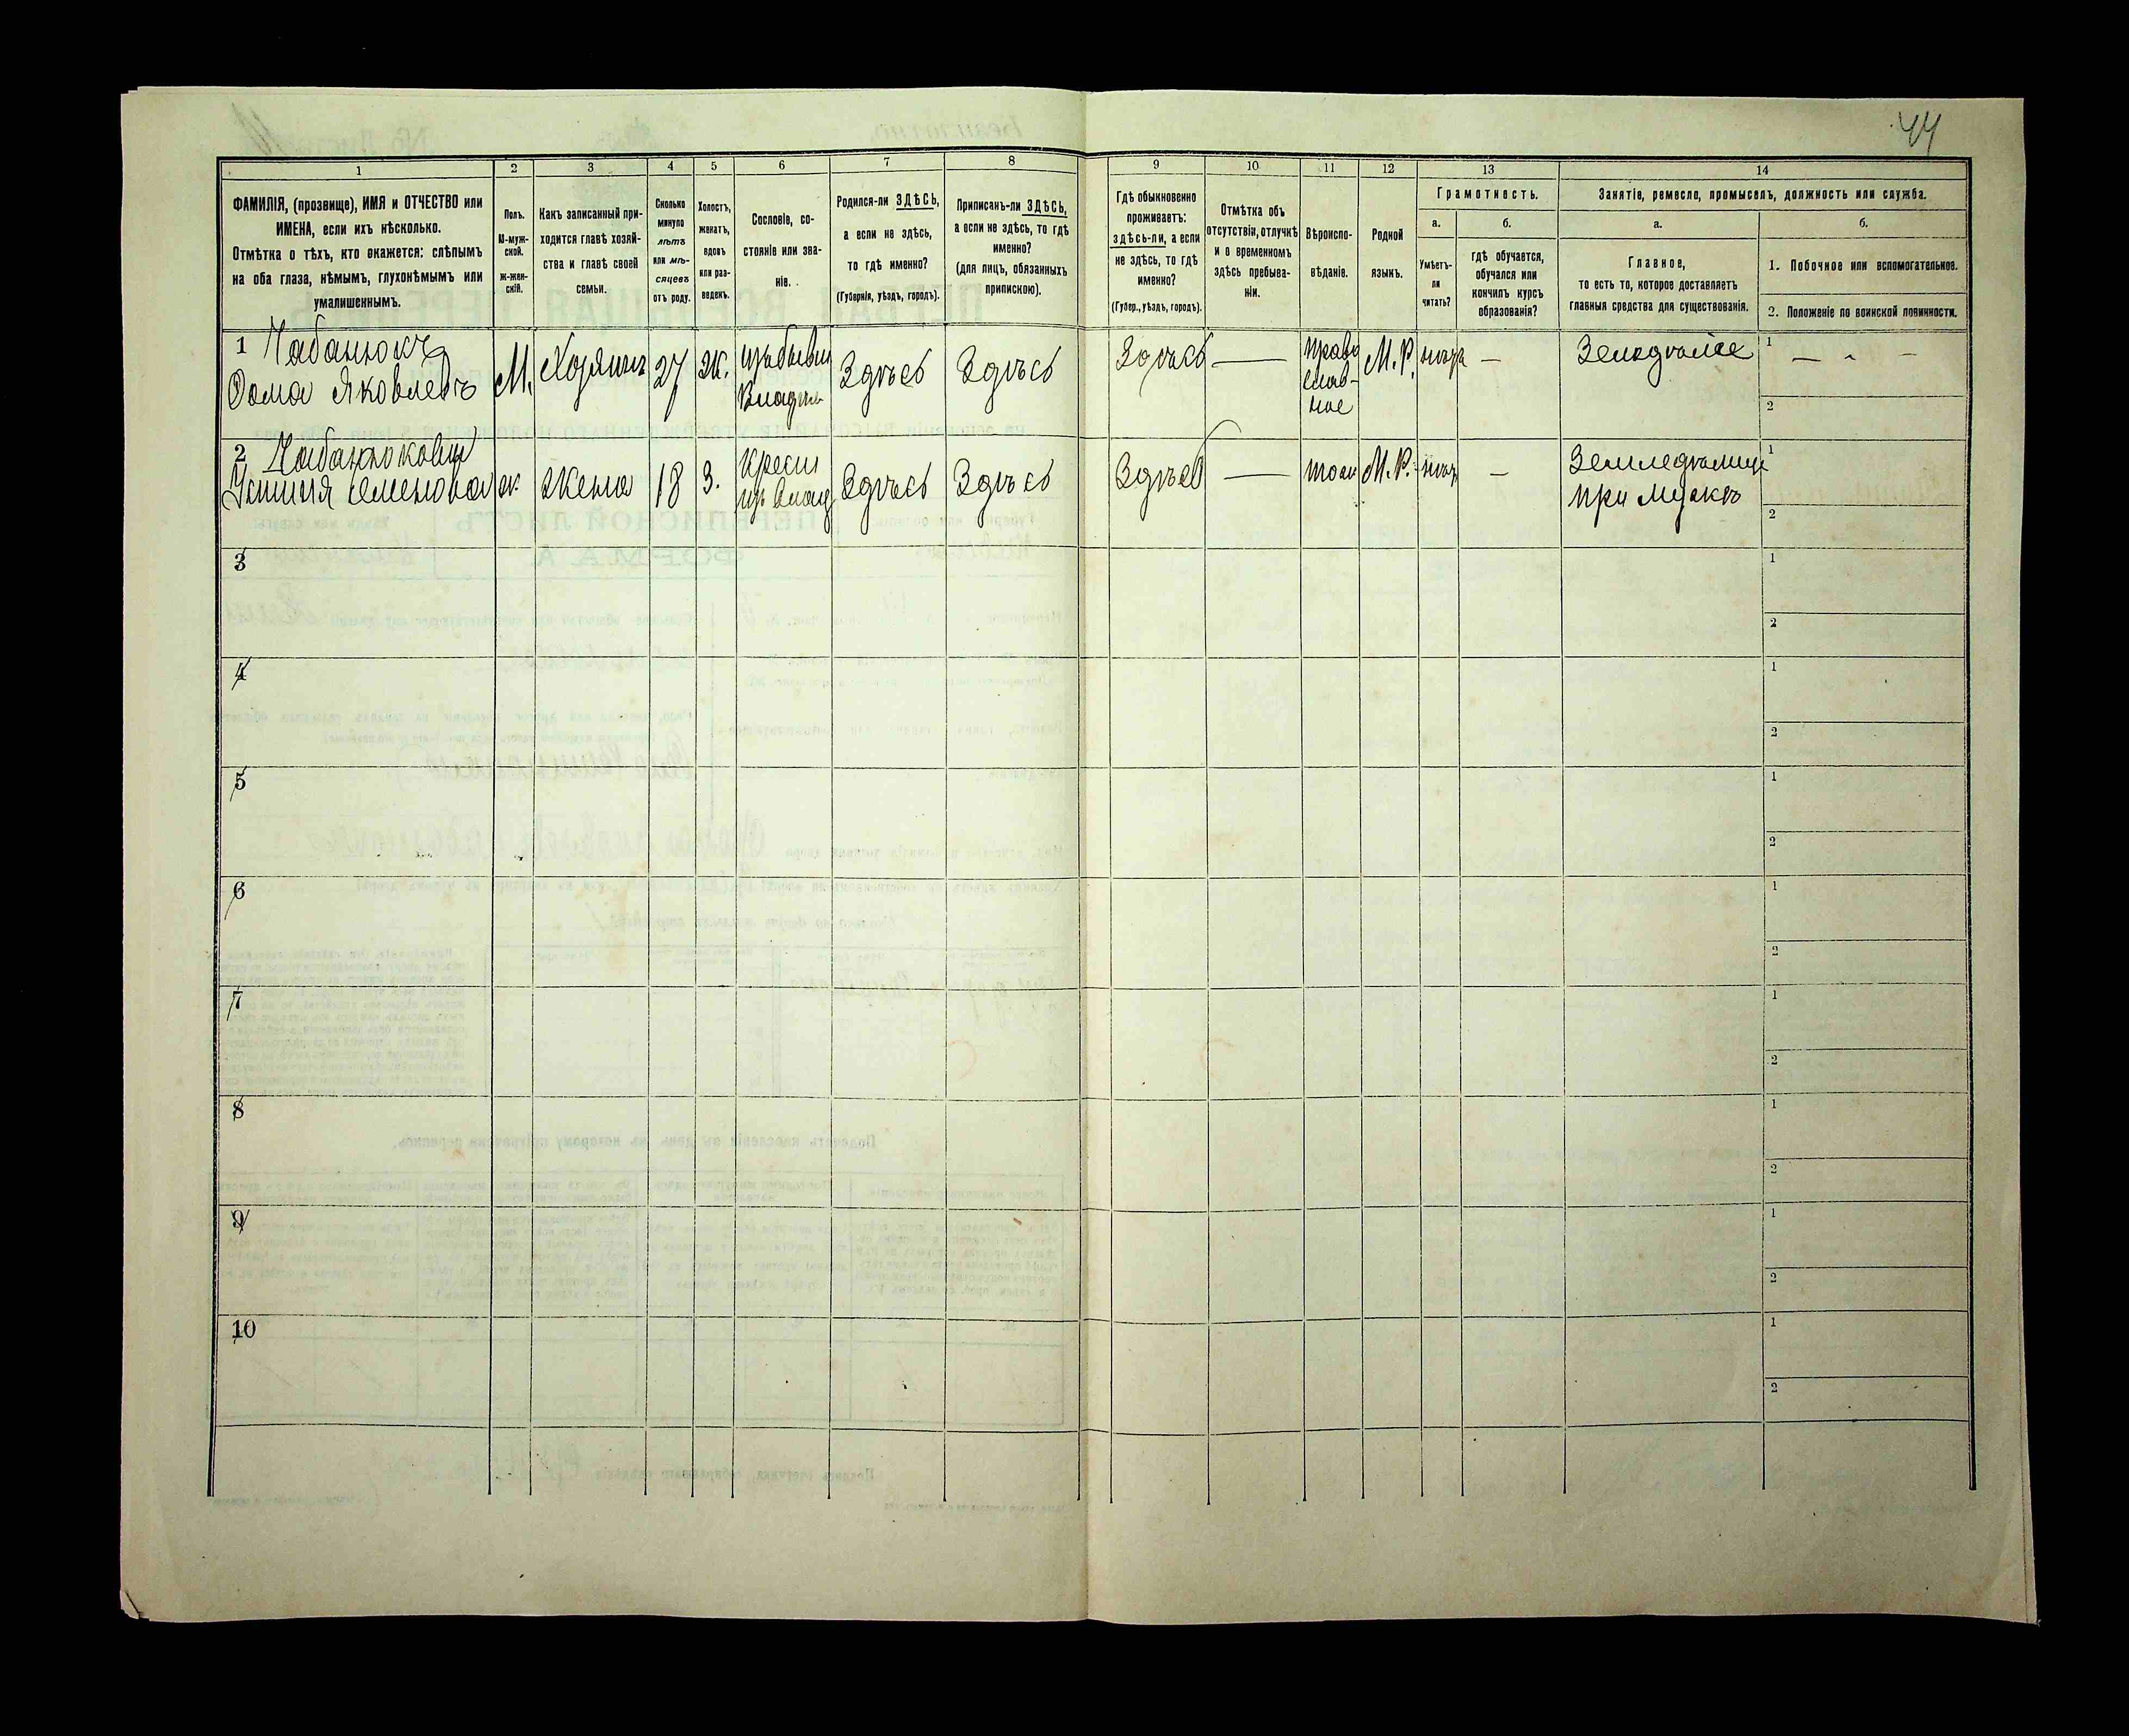 44
1
2
3
4
5
6
7
8
9
10
11
12
13
14
ФАМИЛІЯ, (прозвище), ИМЯ и ОТЧЕСТВО или
ИМЕНА, если ихъ нѣсколько.
Отмѣтка о тѣхъ, кто окажется: слѣпымъ
на оба глаза, нѣмымъ, глухонѣмымъ или
умалишеннымъ.
Полъ.
М-муж-
ской.
ж-жен-
скій.
Какъ записанный при-
ходится главѣ хозяй-
ства и главѣ своей
семьи.
Сколько
минуло
лѣтъ
или мѣ-
сяцевъ
отъ роду.
Холостъ,
женатъ,
вдовъ
или раз-
веденъ.
Сословіе, со-
стояніе или зва-
ніе.
Родился-ли ЗДѢСЬ,
а если не здѣсь,
то гдѣ именно?
(Губернія, уѣздъ, городъ).
Приписанъ-ли ЗДѢСЬ,
а если не здѣсь, то гдѣ
именно?
(для лицъ, обязанныхъ
припискою).
Гдѣ обыкновенно
проживаетъ:
здѣсь-ли, а если
не здѣсь, то гдѣ
именно?
(Губер., уѣздъ, городъ).
Отмѣтка объ
отсутствіи, отлучкѣ
и о временномъ
здѣсь пребыва-
ніи.
Вѣроиспо-
вѣданіе.
Родной
языкъ.
Грамотность.
а.
Умѣетъ-
ли
читать?
б.
гдѣ обучается,
обучался или
кончилъ курсъ
образованія?
Занятіе, ремесло, промыселъ, должность или служба.
а.
Главное,
то есть то, которое доставляетъ
главныя средства для существованія.
б.
1. Побочное или вспомогательное.
2. Положеніе по воинской повинности.
1 Чабанюкъ
Фома Яковлевъ
М.
Хозяинъ
27
Ж.
Владѣл
Здѣсь
Здѣсь
Здѣсь
—
право
слав-
ное
М.Р.
—
Земледѣліе
1 — —
2
2
Устинія Семенова
ж
Жена
18
З.
Крест
изъ влад
Здѣсь
Здѣсь
Здѣсь
—
М.Р.
—
при мужѣ
1
2
3
1
2
4
1
2
5
1
2
6
1
2
7
1
2
8
1
2
9
1
2
10
1
2